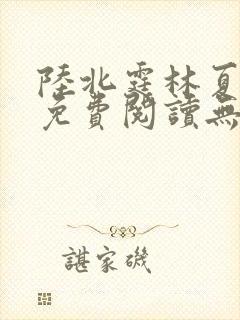 陸北霆林夏
免費閱讀無
諶家磯